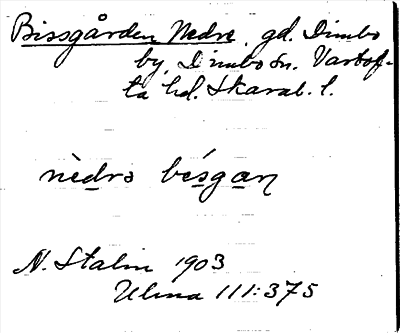 Bissgården Nedre, gd. Dimbo
by, Dimbo sn. Vartof-
ta hd. Skarab. l.
nèdrə bésgan
N. Stalin 1903
Ulma 111:375